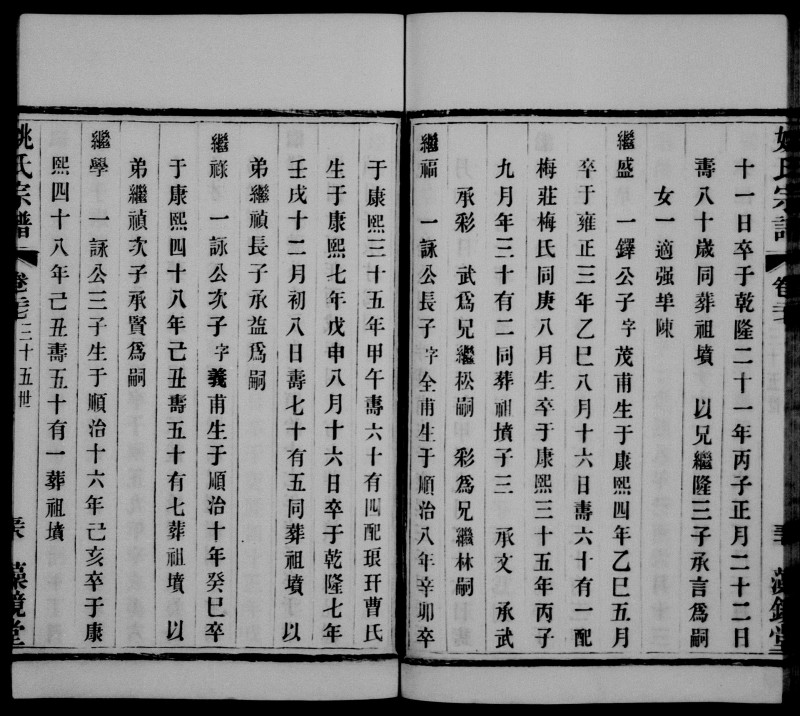 姚氏宗譜
十一日卒于乾隆二十一年丙子正月二十二日
壽八十歲同葬祖墳　以兄繼隆三子承言爲嗣
女一適强毕陳
繼盛　一鐸公子字茂甫生于康熙四年乙巳五月
卒于雍正三年乙巳八月十六日壽六十有一配
梅莊梅氏同庚八月生卒于康熙三十五年丙子
九月年三十有二同葬祖墳子三　承文　承武
承彩　武爲兄繼松嗣　彩爲兄繼林嗣
繼福　一詠公長子字全甫生于順治八年辛卯卒
于康熙三十五年甲午壽六十有四配琅玕曹氏
生于康熙七年戊申八月十六日卒于乾隆七年
壬戌十二月初八日壽七十有五同葬祖墳　以
弟繼禎長子承益爲嗣
繼祿　一詠公次子字義甫生于順治十年癸巳卒
于康熙四十八年己丑壽五十有七葬祖墳　以
弟繼禎次子承賢爲嗣
繼學　一詠公三子生于順治十六年己亥卒于康
熙四十八年己丑壽五十有一葬祖墳
姚氏宗譜
三十五世
藻鏡堂